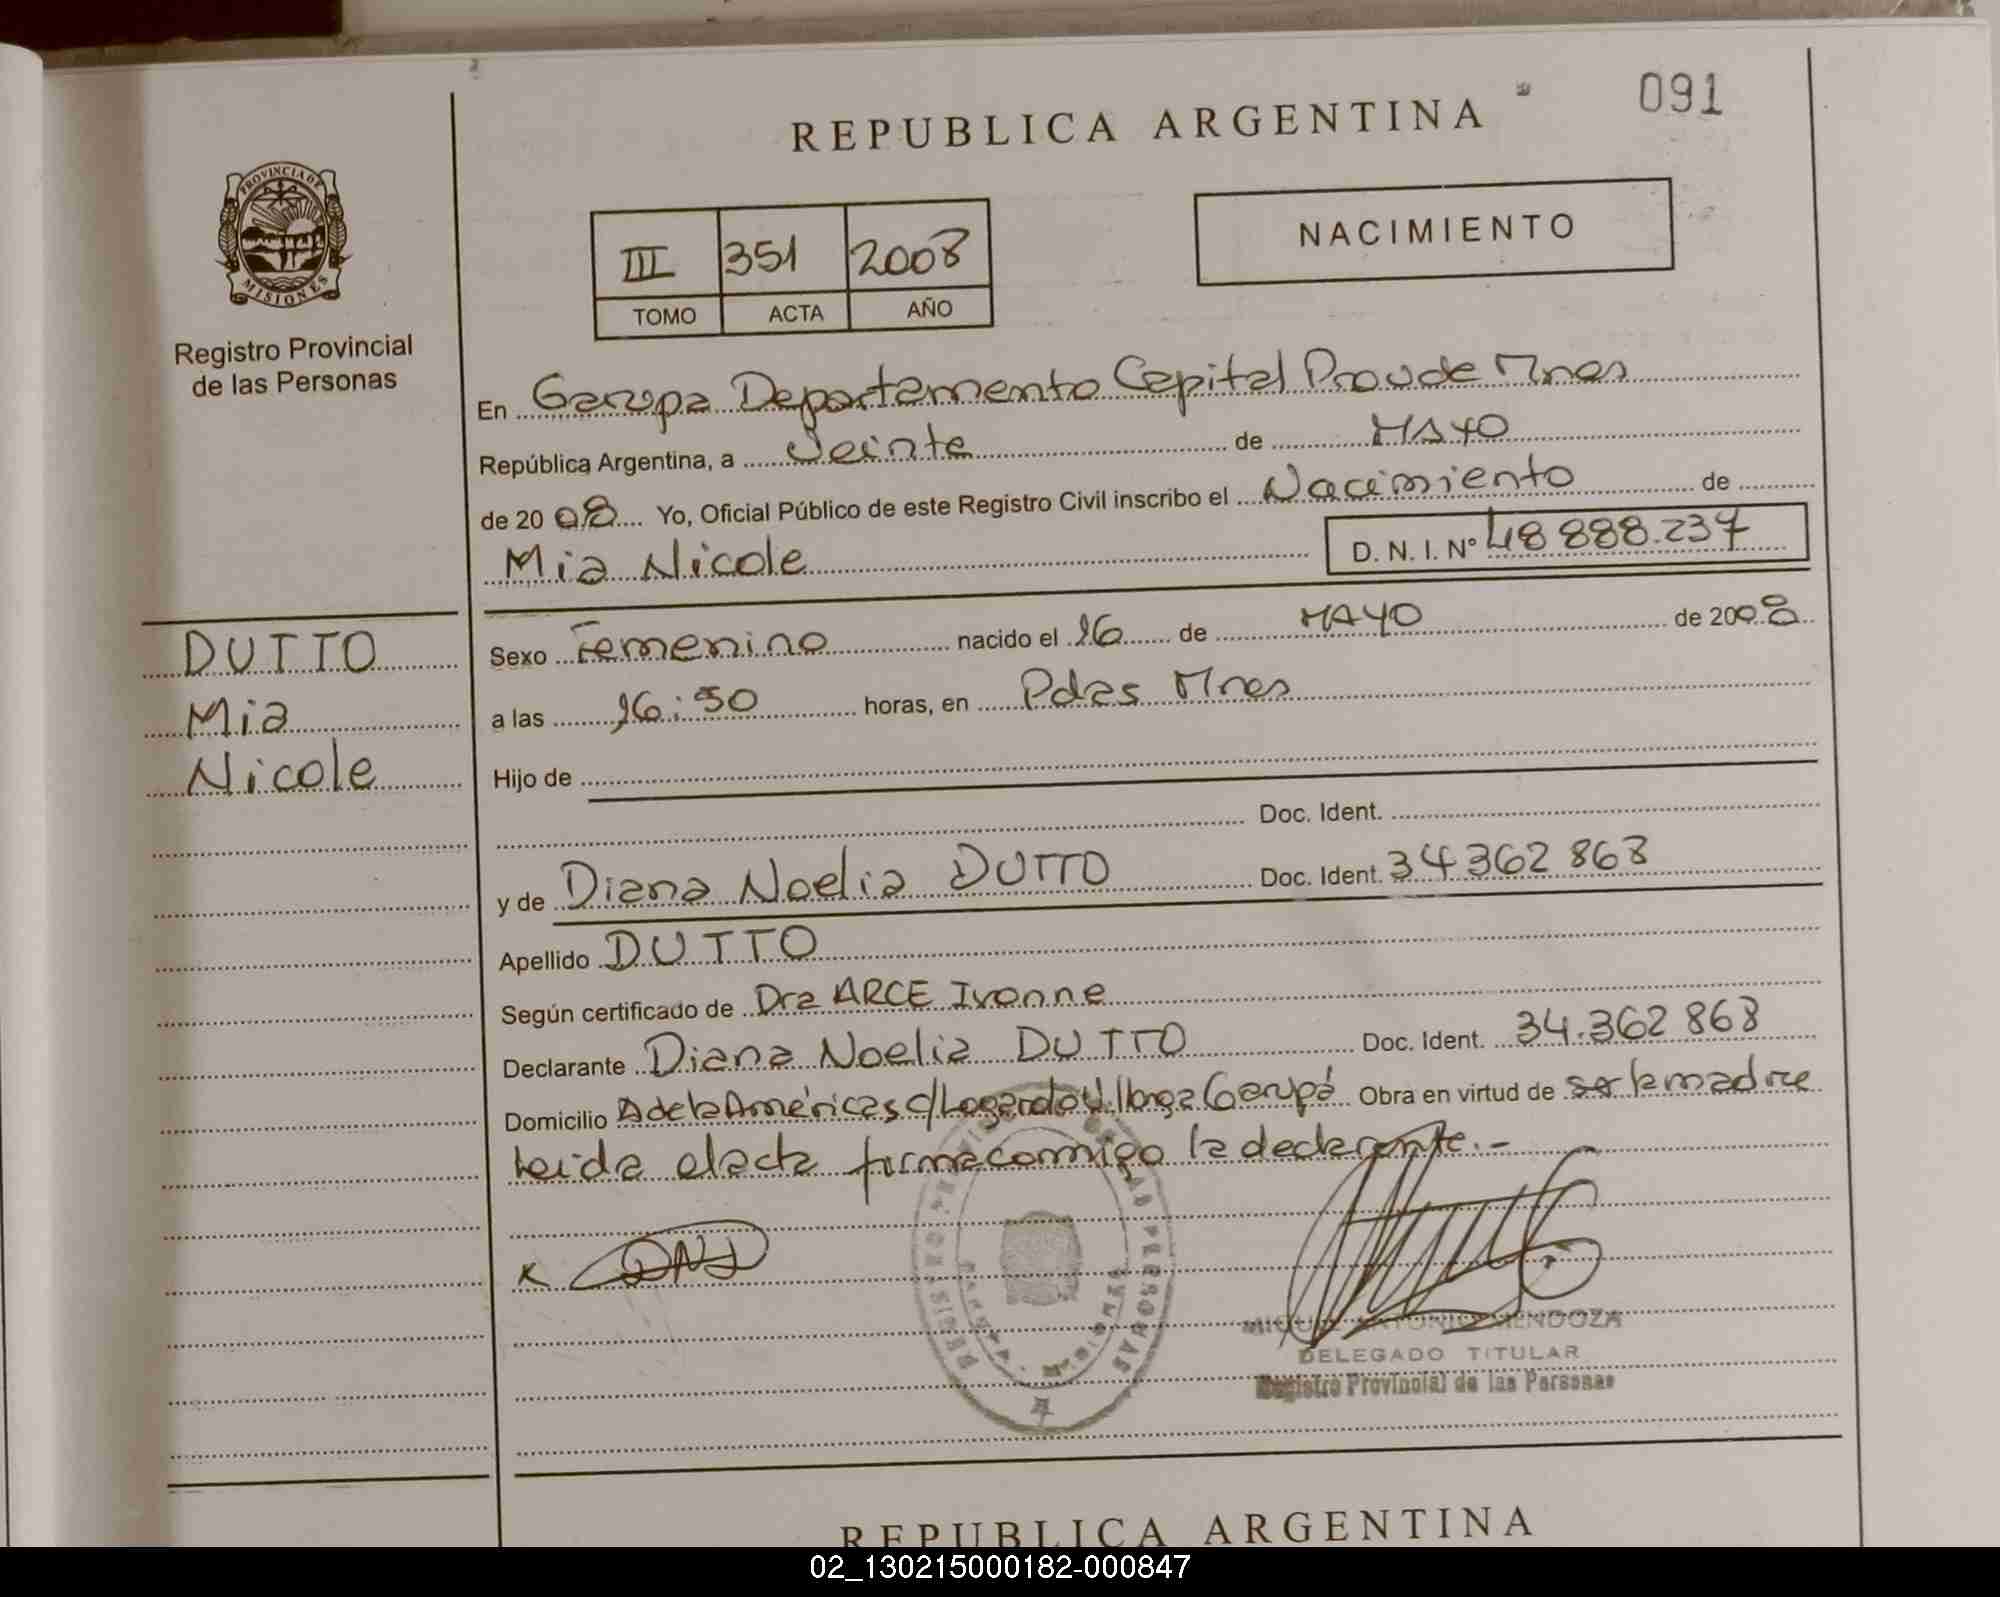 REPUBLICA ARGENTINA
091
PROVINCIA DE
MISIONES
Registro Provincial
de las Personas
III 351 2008
TOMO ACTA AÑO
NACIMIENTO
En Garupa Departamento Capital Prov de Mnes
República Argentina, a Veinte de MAYO
de 2008 Yo, Oficial Público de este Registro Civil inscribo el Nacimiento de
Mia Nicole D. N. I. Nº 48 888.237
DUTTO
Mia
Nicole
Sexo Femenino nacido el 16 de MAYO de 2008
a las 16:50 horas, en Pdas Mnes
Hijo de
Doc. Ident.
y de Diana Noelia DUTTO Doc. Ident. 34 362 868
Apellido DUTTO
Según certificado de Dra ARCE Ivonne
Declarante Diana Noelia DUTTO Doc. Ident. 34.362 868
Domicilio A de las Américas c/ Garupá Obra en virtud de ser la madre
Leida el acta firma conmigo la declarante.-
x DND
MIGUEL ANTONIO MENDOZA
DELEGADO TITULAR
Registro Provincial de las Personas
REPUBLICA ARGENTINA
02_130215000182-000847